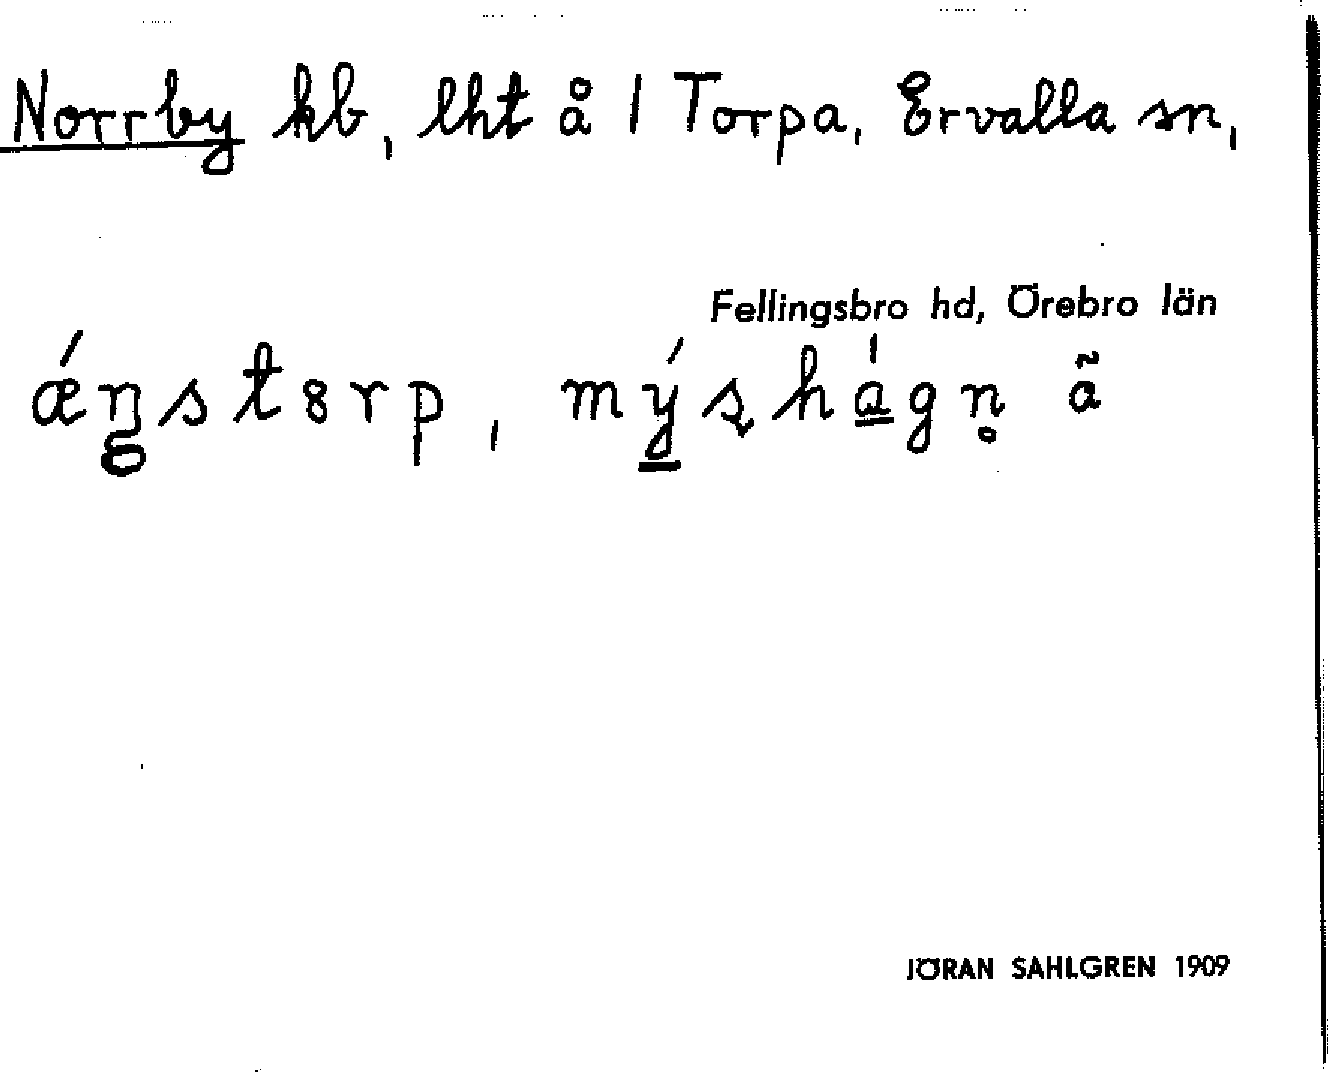 Norrby kb, lht å 1 Torpa, Ervalla sn,
Fellingsbro hd, Örebro län
ǽŋstȣrp, mýsh<u>á</u>gn̥ ã
JÖRAN SAHLGREN 1909